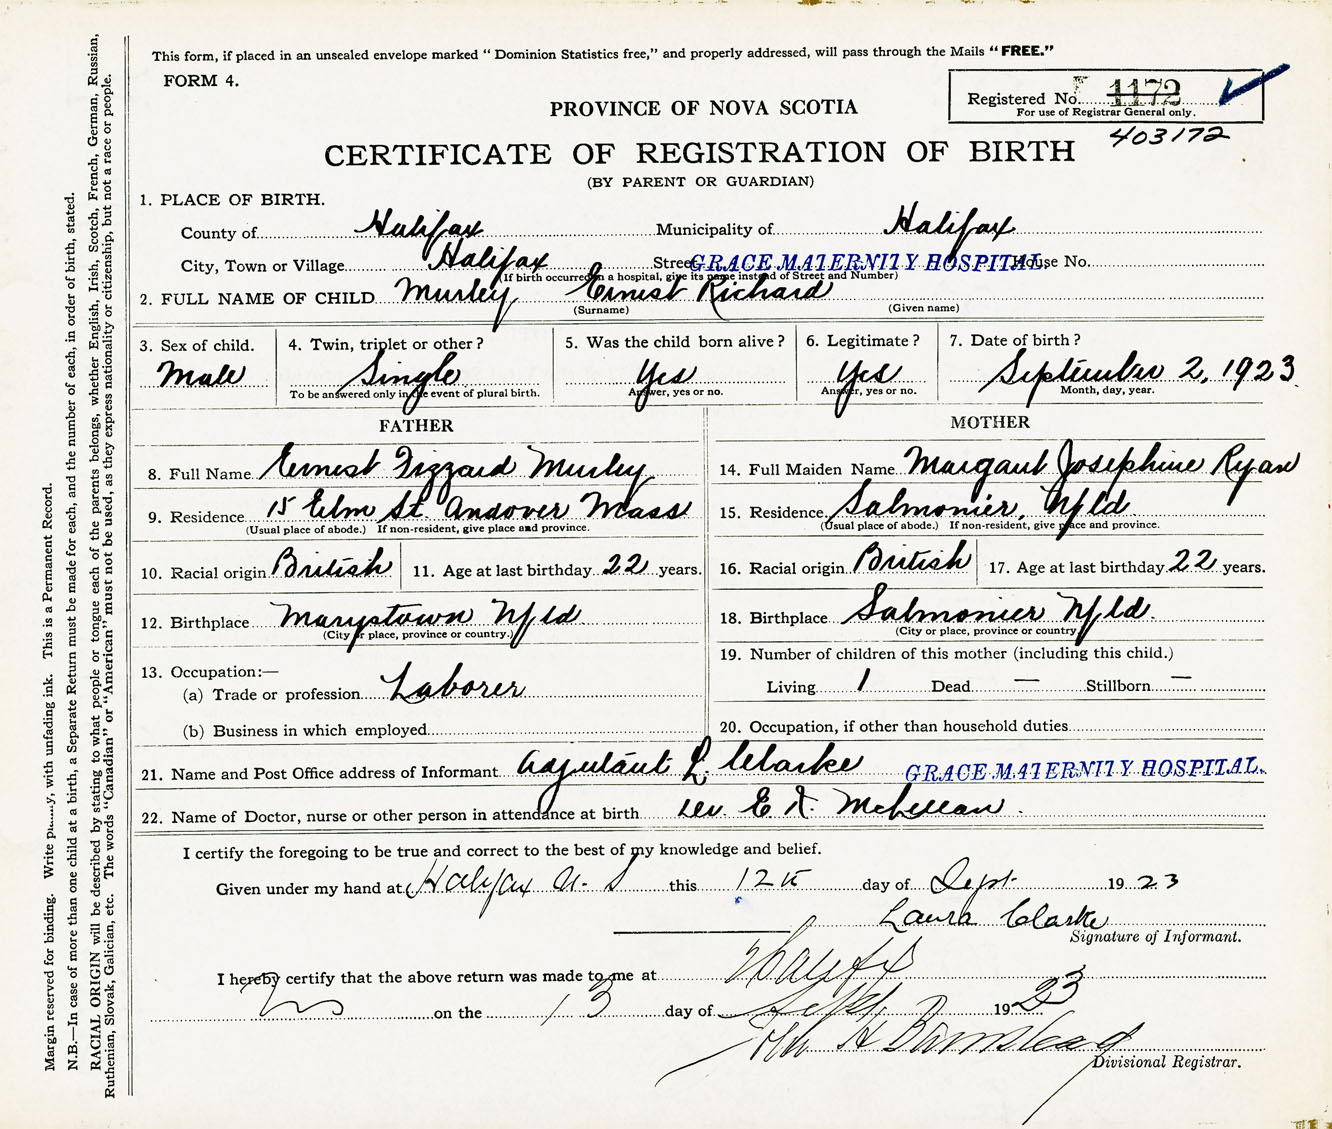 This form, if placed in an unsealed envelope marked “Dominion Statistics free,” and properly addressed, will pass through the Mails “FREE.”
FORM 4.
Registered No. 1172
For use of Registrar General only.
403172
PROVINCE OF NOVA SCOTIA
CERTIFICATE OF REGISTRATION OF BIRTH
(BY PARENT OR GUARDIAN)
1. PLACE OF BIRTH.
County of Halifax Municipality of Halifax
City, Town or Village Halifax Street GRACE MATERNITY HOSPITAL, House No.
(If birth occurred in a hospital, give its name instead of Street and Number)
2. FULL NAME OF CHILD Murley Ernest Richard
(Surname) (Given name)
3. Sex of child. Male
4. Twin, triplet or other? Single
To be answered only in the event of plural birth.
5. Was the child born alive? Yes
Answer, yes or no.
6. Legitimate? Yes
Answer, yes or no.
7. Date of birth? September 2, 1923
Month, day, year.
FATHER
8. Full Name Ernest Fizzard Murley
9. Residence 15 Elm St. Andover Mass
(Usual place of abode.) If non-resident, give place and province.
10. Racial origin British 11. Age at last birthday 22 years.
12. Birthplace Marystown Nfld
(City or place, province or country.)
13. Occupation:—
(a) Trade or profession Laborer
(b) Business in which employed
MOTHER
14. Full Maiden Name Margaut Josephine Ryan
15. Residence Salmonier, Nfld.
(Usual place of abode.) If non-resident, give place and province.
16. Racial origin British 17. Age at last birthday 22 years.
18. Birthplace Salmonier Nfld.
(City or place, province or country
19. Number of children of this mother (including this child.)
Living 1 Dead — Stillborn —
20. Occupation, if other than household duties
21. Name and Post Office address of Informant Adjutant L. Clarke GRACE MATERNITY HOSPITAL.
22. Name of Doctor, nurse or other person in attendance at birth E McLellan.
I certify the foregoing to be true and correct to the best of my knowledge and belief.
Given under my hand at Halifax N. S this 12th day of Sept. 1923
Laura Clarke
Signature of Informant.
I hereby certify that the above return was made to me at Halifax
NS on the 13 day of Sept 1923
Divisional Registrar.
Margin reserved for binding. Write with unfading ink. This is a Permanent Record.
N.B.—In case of more than one child at a birth, a Separate Return must be made for each, and the number of each, in order of birth, stated.
RACIAL ORIGIN will be described by stating to what people or tongue each of the parents belongs, whether English, Irish, Scotch, French, German, Russian,
Ruthenian, Slovak, Galician, etc. The words “Canadian” or “American” must not be used, as they express nationality or citizenship, but not a race or people.